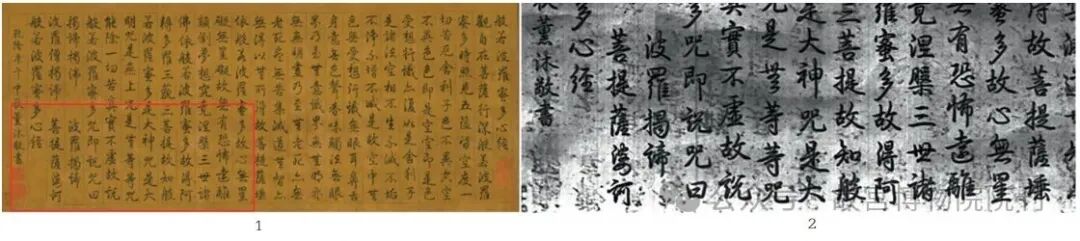 般若波羅蜜多心經
觀自在菩薩行深般若波羅
蜜多時照見五蘊皆空度一
切苦厄舍利子色不異空空
不異色色即是空空即是色
受想行識亦復如是舍利子
是諸法空相不生不滅不垢
不淨不增不減是故空中無
色無受想行識無眼耳鼻舌
身意無色聲香味觸法無眼
界乃至無意識界無無明亦
無無明盡乃至無老死亦無
老死盡無苦集滅道無智亦
無得以無所得故菩提薩埵
依般若波羅蜜多故心無罣
礙無罣礙故無有恐怖遠離
顛倒夢想究竟涅槃三世諸
佛依般若波羅蜜多故得阿
耨多羅三藐三菩提故知般
若波羅蜜多是大神咒是大
明咒是無上咒是無等等咒
能除一切苦真實不虛故說
般若波羅蜜多咒即說咒曰
揭諦揭諦 波羅揭諦
波羅僧揭諦 菩提薩婆訶
般若波羅蜜多心經
乾隆 秋薰沐敬書
1
得故菩提薩埵
蜜多故心無罣
無有恐怖遠離
竟涅槃三世諸
羅蜜多故得阿
三菩提故知般
是大神咒是大
是無等等咒
真實不虛故說
咒即說咒曰
波羅揭諦
菩提薩婆訶
多心經
秋薰沐敬書
公众号 故宫博物院院刊
2